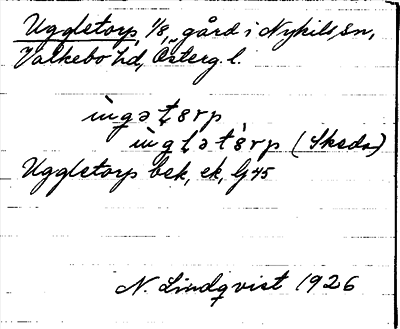 Uggletorp, 1/8, gård i Nykils sn,
Valkebo hd, Österg. l.
ùgətɵrp
ùglətɵ̀rp (Skeda)
Uggletorp bek, ek, Gj 45
N. Lindqvist 1926